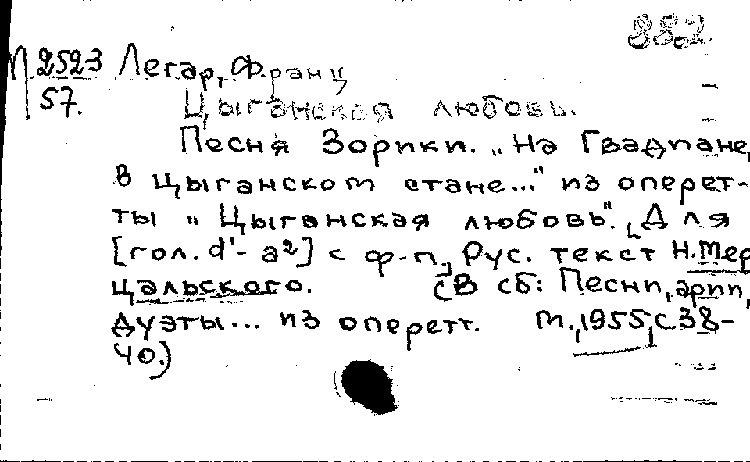 882.
П 2523 Легар, Франц
57. Цыганская любовь.
Песня Зорики. "На Гвадпане,
в цыганском стане..." из оперет-
ты "Цыганская любовь". [Для
[гол. d¹- a²] с ф-п., Рус. текст Н. Мер
цальского. (В сб: Песни, арии,
дуэты... из оперетт. М., 1955, с 38-
40.)